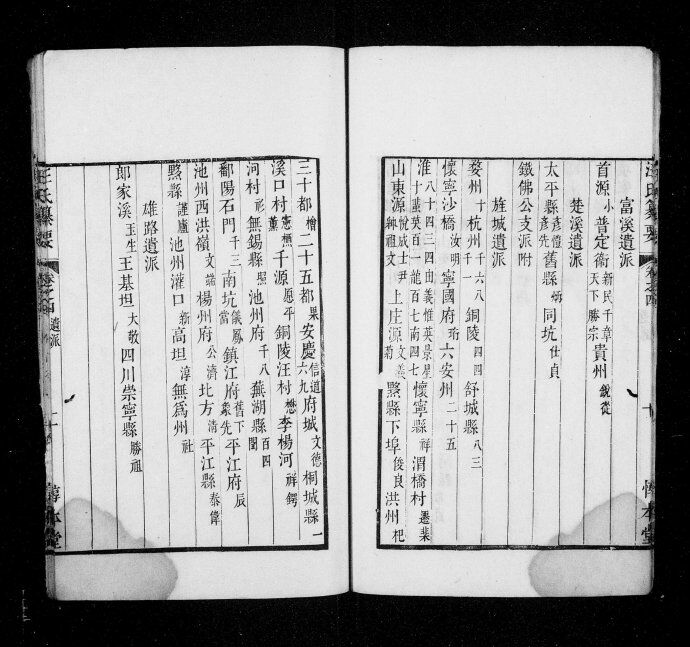 富溪遺派
首源小普定衞新民千章天下勝宗貴州銳從
楚溪遺派
太平縣彥禮彥先舊縣炳同坑仕貞
鐵佛公支派附
旌城遺派
婺州十杭州千六八一銅陵四四舒城縣八三
懷寧沙橋汝明寧國府珩六安州二十五
淮八十四三四由義惟英景星十葉英百一龍百七南四七懷寧縣祥渭橋村遷葉
山東源悅威士尹紳祖文上庄源文義黟縣下埠俊良洪州杞
三十都檜二十五都果安慶信道六九府城文德桐城縣一
溪口村憲懋薰千源愿平銅陵汪村懋李楊河祥鍔
河村彤無錫縣熙池州府千八蕪湖縣百四閏
鄱陽石門千三當南坑儀鳳鎮江府舊下象先平江府辰
池州西洪嶺文端楊州府公濟北方清平江縣泰偉
黟縣謹廬池州灌口新高坦淳無爲州社
雄路遺派
郎家溪玉生王基坦大敬四川崇寧縣勝祖
汪氏纂要 卷之四 遺派